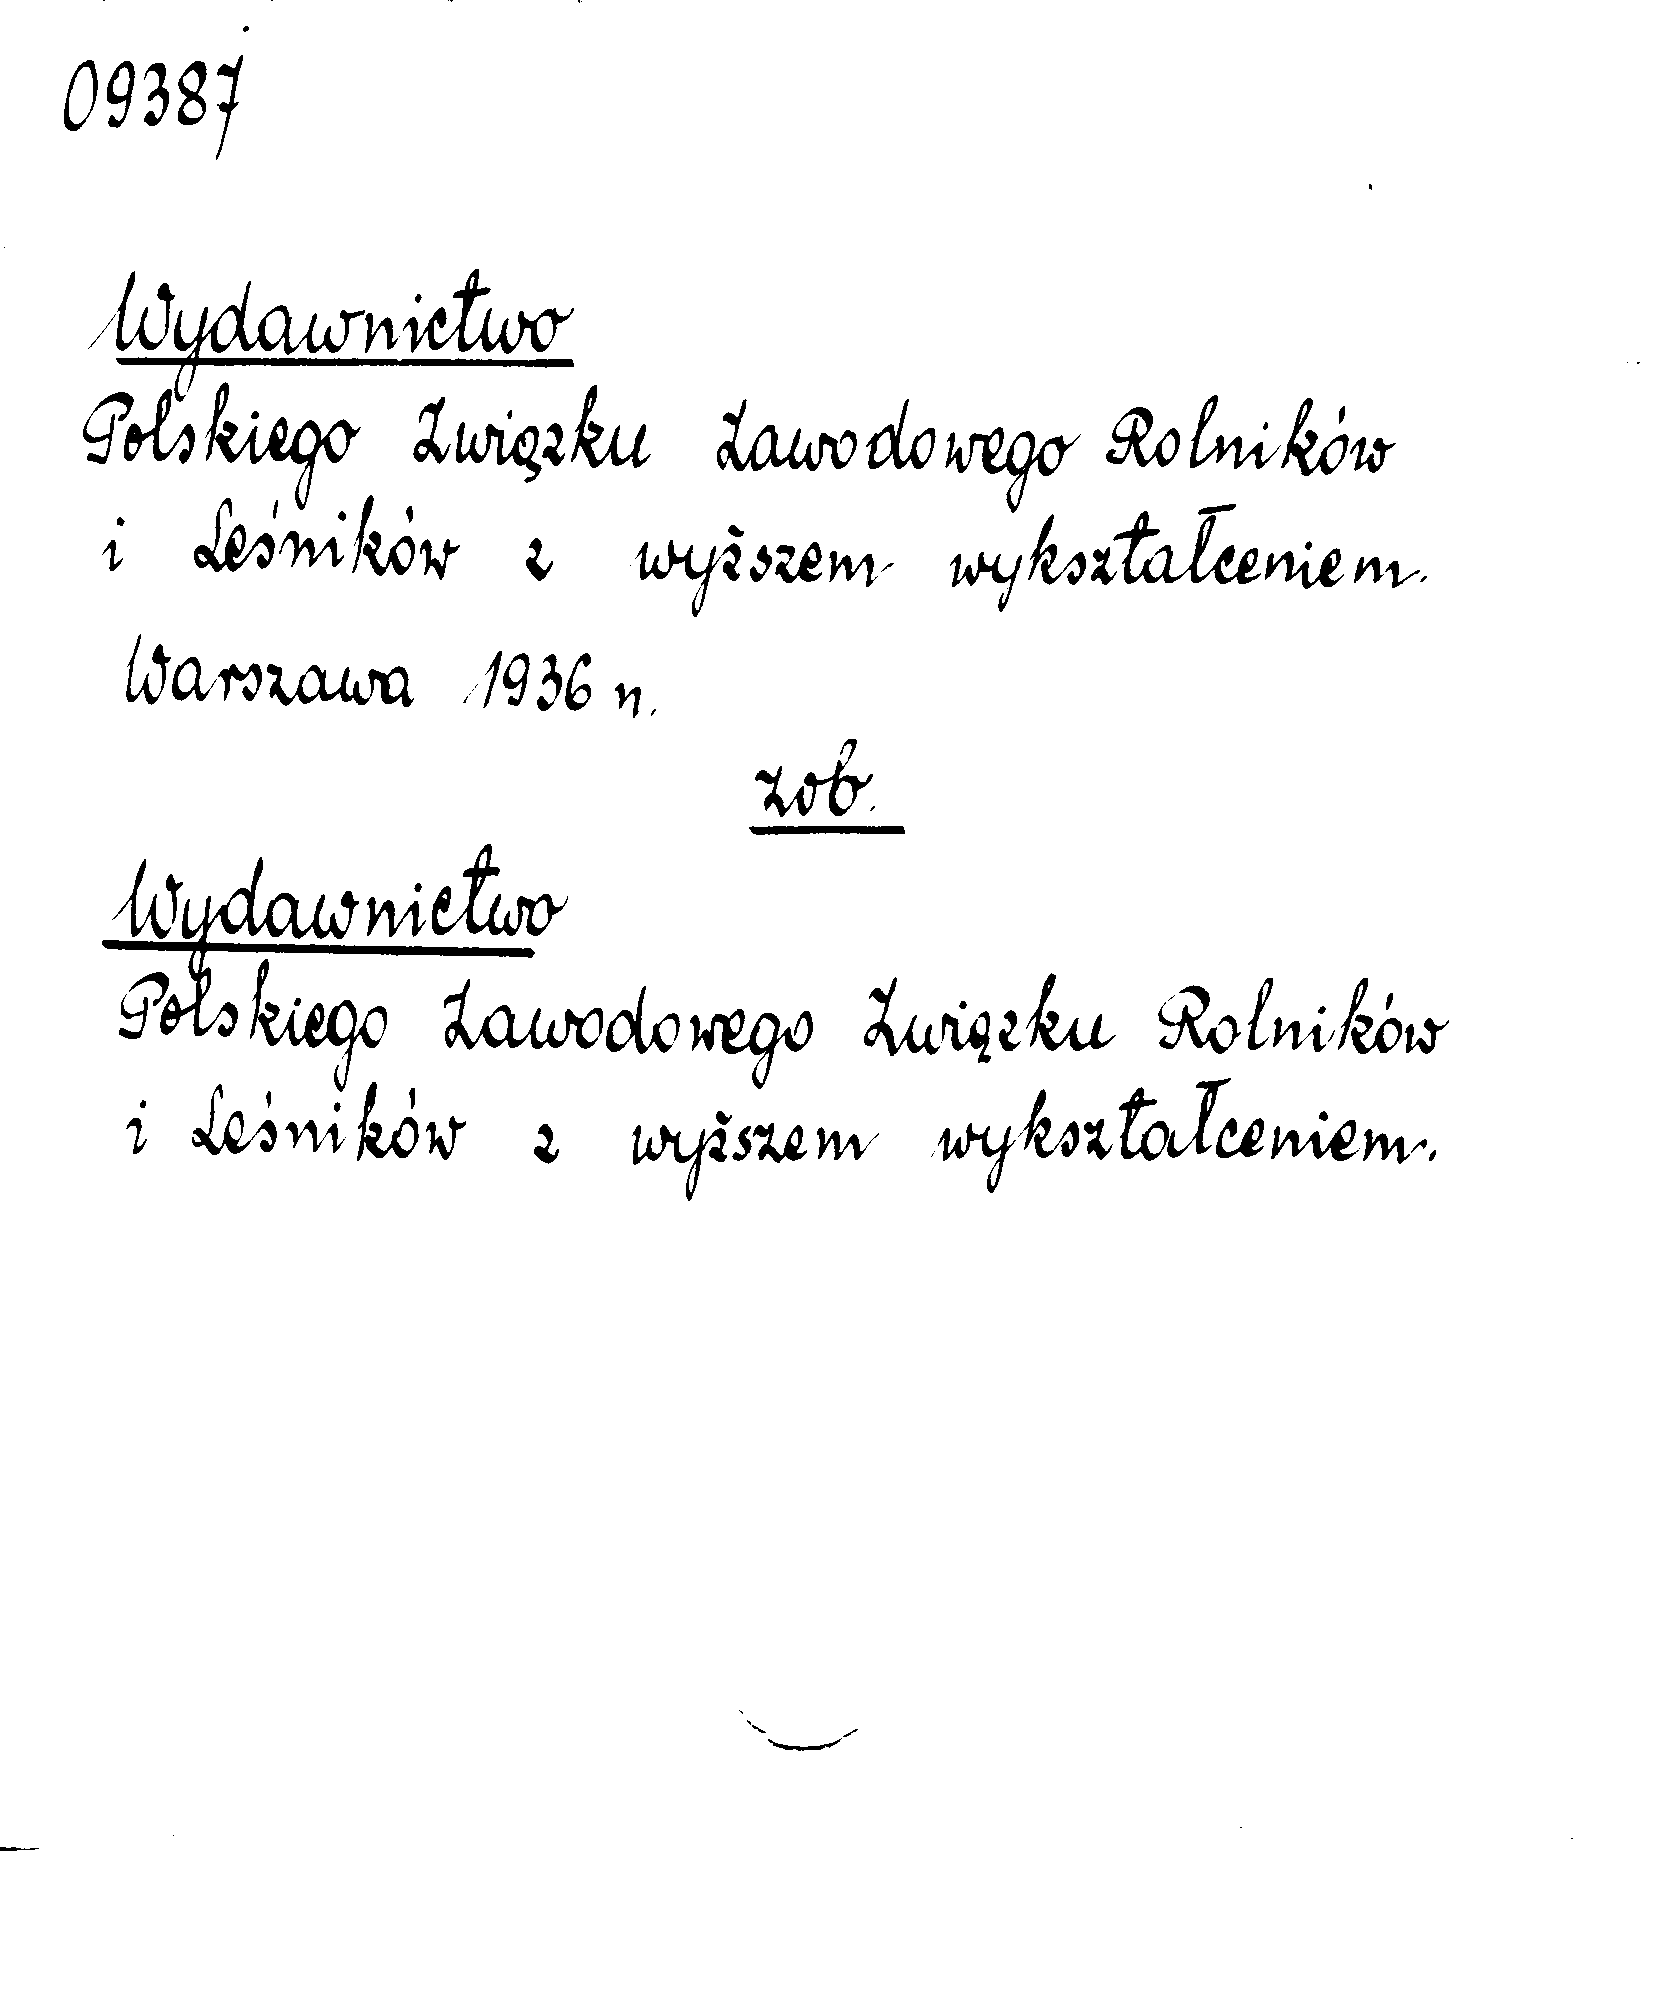 09387
Wydawnictwo
Polskiego Związku Zawodowego Rolników
i Leśników z wyższem wykształceniem.
Warszawa 1936 n.
zob.
Wydawnictwo
Polskiego Zawodowego Związku Rolników
i Leśników z wyższem wykształceniem.